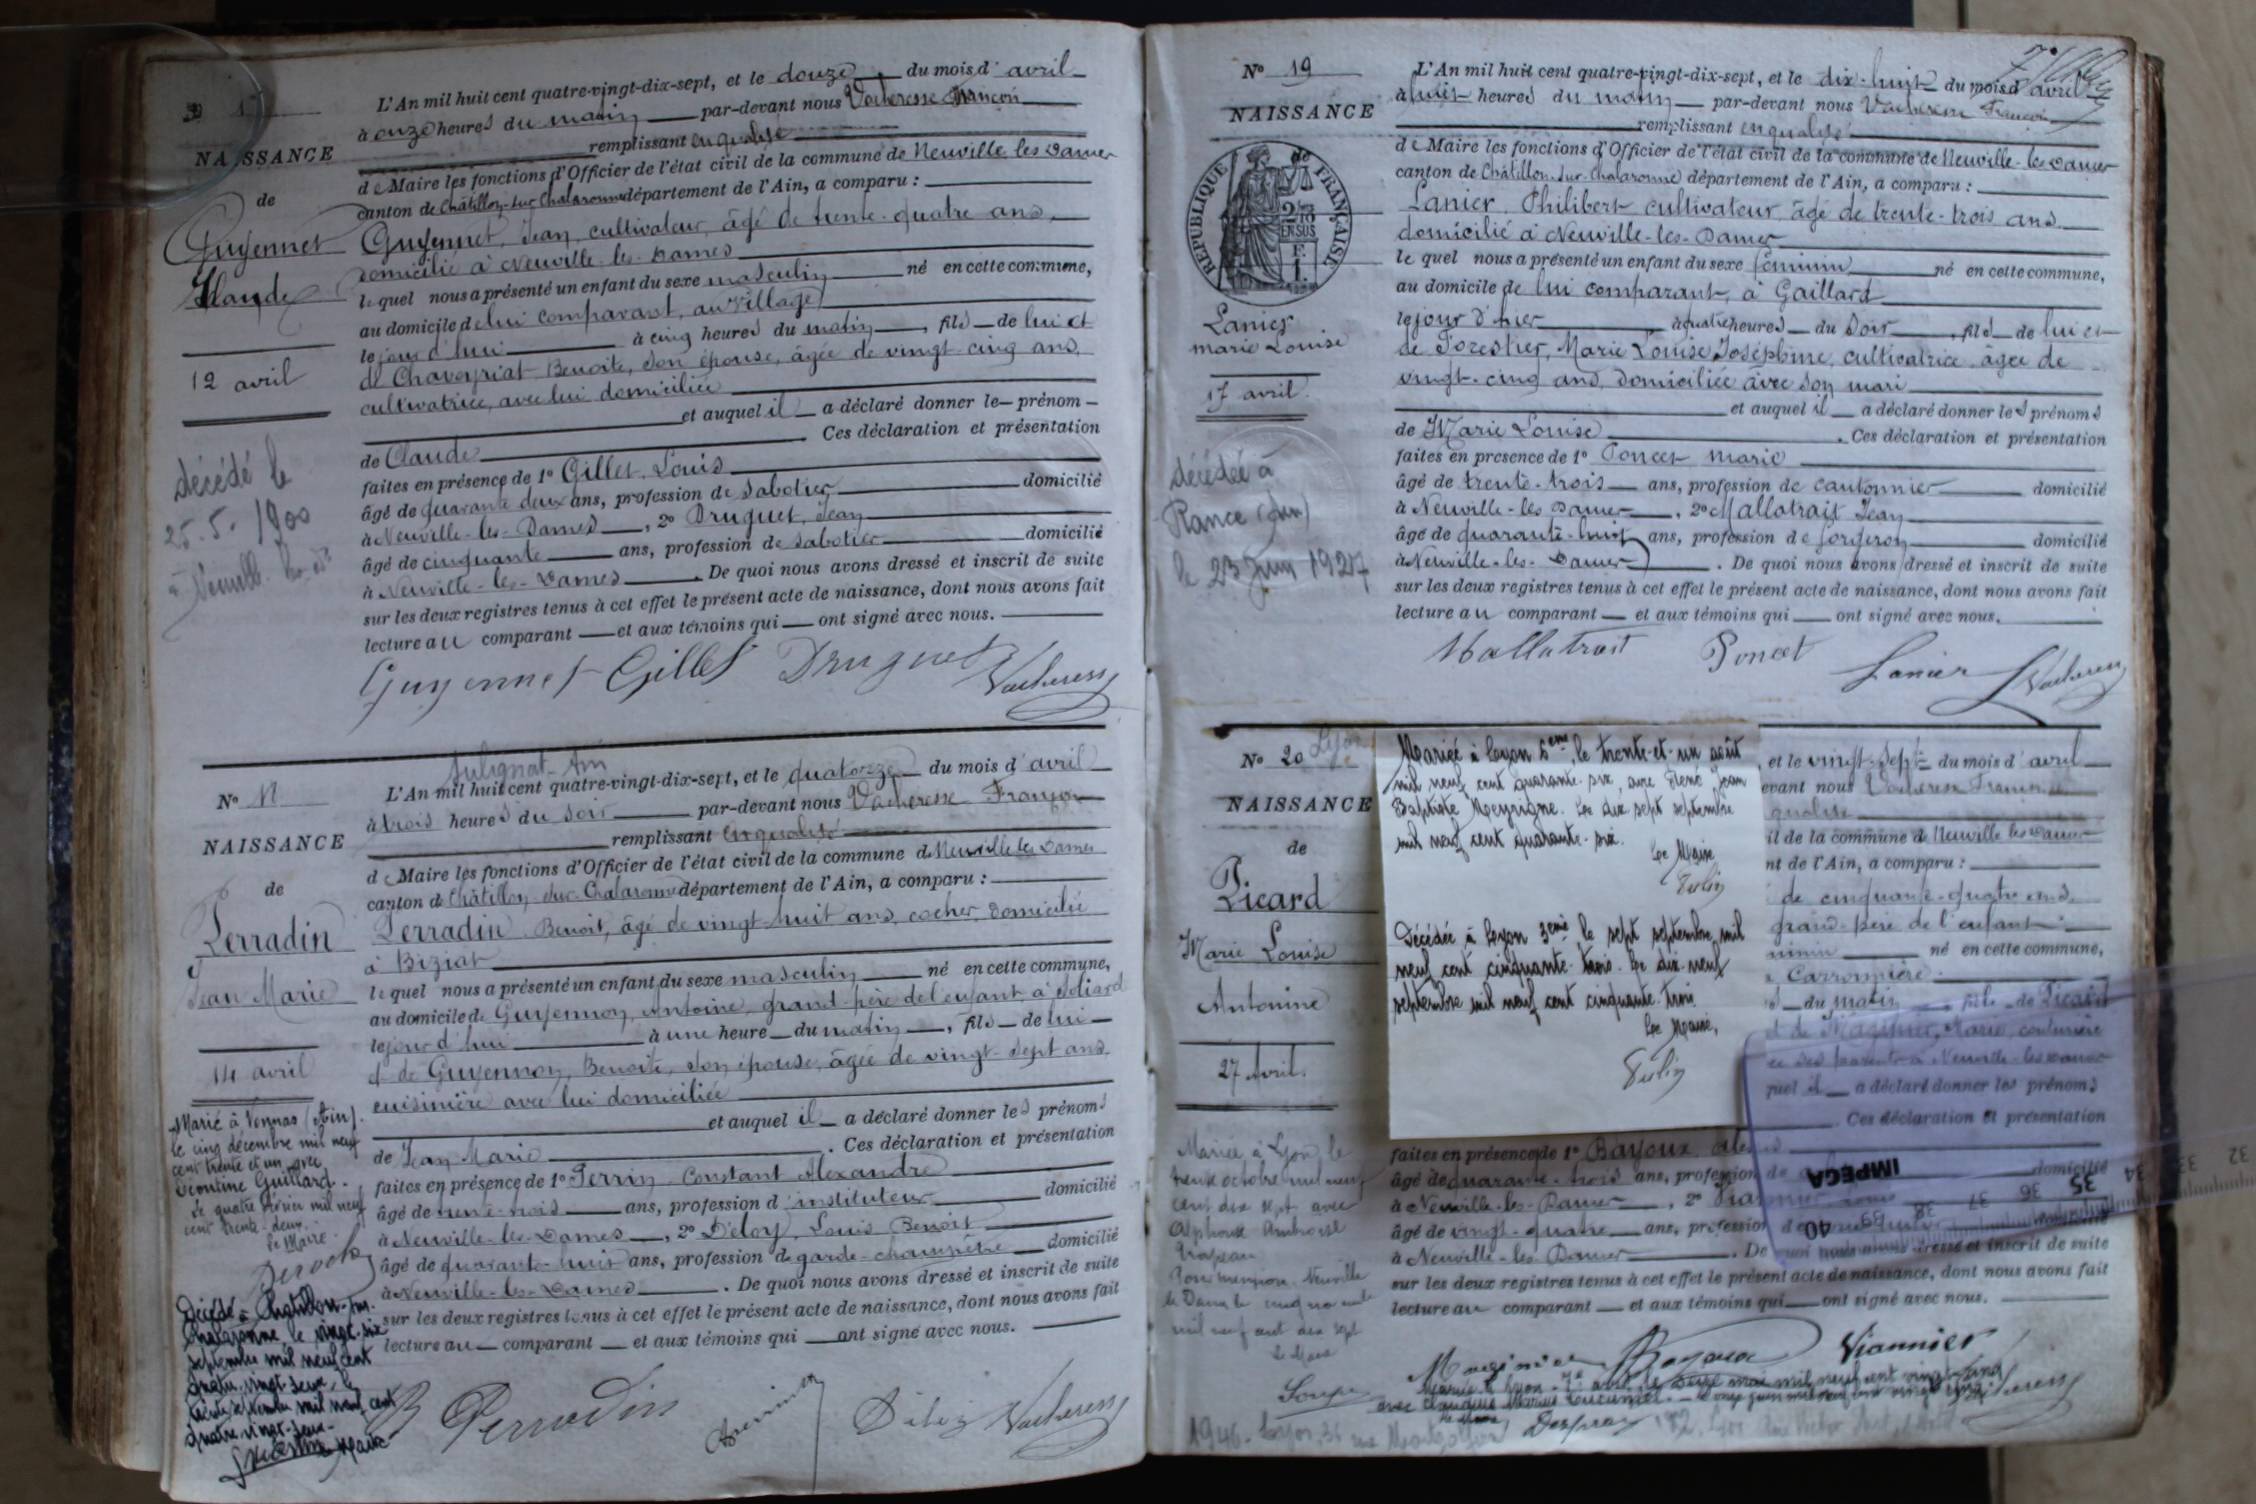 NAISSANCE
de
Guyennet
Claude
12 avril
décédé le
25.5.1900
L'An mil huit cent quatre-vingt-dix-sept, et le douze du mois d'avril
à onze heures du matin par-devant nous Vacheresse François
remplissant en qualité
de Maire les fonctions d'Officier de l'état civil de la commune de Neuville les Dames
canton de Châtillon-sur-Chalaronne département de l'Ain, a comparu :
Guyennet, Jean, cultivateur, âgé de trente-quatre ans,
domicilié à Neuville-les-Dames
le quel nous a présenté un enfant du sexe masculin né en cette commune,
au domicile de lui comparant, au village
le jour d'hui à cinq heures du matin, fils de lui et
de Chaveyriat Benoite, son épouse, âgée de vingt-cinq ans,
cultivatrice, avec lui domiciliée
et auquel il a déclaré donner le prénom
de Claude. Ces déclaration et présentation
faites en présence de 1º Gillet, Louis
âgé de quarante deux ans, profession de sabotier domicilié
à Neuville-les-Dames, 2º Druguet, Jean
âgé de cinquante ans, profession de sabotier domicilié
à Neuville-les-Dames. De quoi nous avons dressé et inscrit de suite
sur les deux registres tenus à cet effet le présent acte de naissance, dont nous avons fait
lecture au comparant et aux témoins qui ont signé avec nous.
Guyennet Gillet Druguet Vacheresse
Nº
NAISSANCE
de
Perradin
Jean Marie
14 avril
Marié à Vonnas (Ain)
le cinq décembre mil neuf
cent trente et un avec
Léontine Guillard.
Le quatre février mil neuf
cent trente-deux.
Le Maire
Décédé à Châtillon-sur-
Chalaronne le vingt-six
septembre mil neuf cent
quatre-vingt-deux, le
trente septembre mil neuf cent
quatre-vingt-deux
Maire
Sulignat-Ain
L'An mil huit cent quatre-vingt-dix-sept, et le quatorze du mois d'avril
à trois heures du soir par-devant nous Vacheresse François
remplissant en qualité
de Maire les fonctions d'Officier de l'état civil de la commune de Neuville les Dames
canton de Châtillon-sur-Chalaronne département de l'Ain, a comparu :
Perradin Benoit, âgé de vingt-huit ans, cocher, domicilié
à Biziat
le quel nous a présenté un enfant du sexe masculin né en cette commune,
au domicile de Guyennon, Antoine, grand-père de l'enfant à
le jour d'hui à une heure du matin, fils de lui
et de Guyennon, Benoite, son épouse, âgée de vingt-sept ans,
cuisinière avec lui domiciliée
et auquel il a déclaré donner les prénoms
de Jean Marie. Ces déclaration et présentation
faites en présence de 1º Perrin Constant Alexandre
âgé de trente-trois ans, profession d'instituteur domicilié
à Neuville-les-Dames, 2º Deloy, Louis Benoit
âgé de quarante-huit ans, profession de garde-champêtre domicilié
à Neuville-les-Dames. De quoi nous avons dressé et inscrit de suite
sur les deux registres tenus à cet effet le présent acte de naissance, dont nous avons fait
lecture au comparant et aux témoins qui ont signé avec nous.
B Perradin Perrin Deloy Vacheresse
Nº 19
NAISSANCE
de
RÉPUBLIQUE FRANÇAISE
Lanier
Marie Louise
17 avril
décédée à
Rance (Ain)
le 23 Juin 1927
L'An mil huit cent quatre-vingt-dix-sept, et le dix-huit du mois d'avril
à huit heures du matin par-devant nous Vacheresse François
remplissant en qualité
de Maire les fonctions d'Officier de l'état civil de la commune de Neuville-les-Dames
canton de Châtillon-sur-Chalaronne département de l'Ain, a comparu :
Lanier, Philibert cultivateur, âgé de trente-trois ans
domicilié à Neuville-les-Dames
le quel nous a présenté un enfant du sexe féminin né en cette commune,
au domicile de lui comparant, à Gaillard
le jour d'hier à quatre heures du soir, fils de lui et
de Forestier, Marie Louise Joséphine, cultivatrice, âgée de
vingt-cinq ans, domiciliée avec son mari
et auquel il a déclaré donner les prénoms
de Marie Louise. Ces déclaration et présentation
faites en présence de 1º Poncet Marie
âgé de trente-trois ans, profession de cantonnier domicilié
à Neuville-les-Dames, 2º Mallatrait Jean
âgé de quarante-huit ans, profession de forgeron domicilié
à Neuville-les-Dames. De quoi nous avons dressé et inscrit de suite
sur les deux registres tenus à cet effet le présent acte de naissance, dont nous avons fait
lecture au comparant et aux témoins qui ont signé avec nous.
Mallatrait Poncet Lanier Vacheresse
Nº 20 Lyon
NAISSANCE
de
Picard
Marie Louise
Antonine
27 Avril.
Mariée à Lyon, le
treize octobre mil neuf
cent dix sept avec
Alphonse Ambroise
Pour mention. Neuville
les Dames le cinq
mil neuf cent dix sept
le Maire
Mariée à Lyon 6eme, le trente-et-un août
mil neuf cent quarante-six, avec René Jean
Baptiste Meyrigne. Le dix sept septembre
mil neuf cent quarante-six.
Le Maire
Décédée à Lyon 3eme le sept septembre mil
neuf cent cinquante-trois. Le dix-neuf
septembre mil neuf cent cinquante-trois.
Le Maire,
et le vingt-sept du mois d'avril
evant nous Vacheresse François
qualité
il de la commune de Neuville les Dames
nt de l'Ain, a comparu :
de cinquante-quatre ans,
grand-père de l'enfant
né en cette commune,
Carronnière
du matin, fils de Picard
et de Maginier, Marie, couturière
ses parents à Neuville-les-Dames
quel il a déclaré donner les prénoms
. Ces déclaration et présentation
faites en présence de 1º Bajoux
âgé de quarante-trois ans, profession de domicilié
à Neuville-les-Dames, 2º
âgé de vingt-quatre ans, profession
à Neuville-les-Dames. De quoi nous avons dressé et inscrit de suite
sur les deux registres tenus à cet effet le présent acte de naissance, dont nous avons fait
lecture au comparant et aux témoins qui ont signé avec nous.
Viannier
Mariée à Lyon
IMPEGA
32 33 34 35 36 37 38 39 40